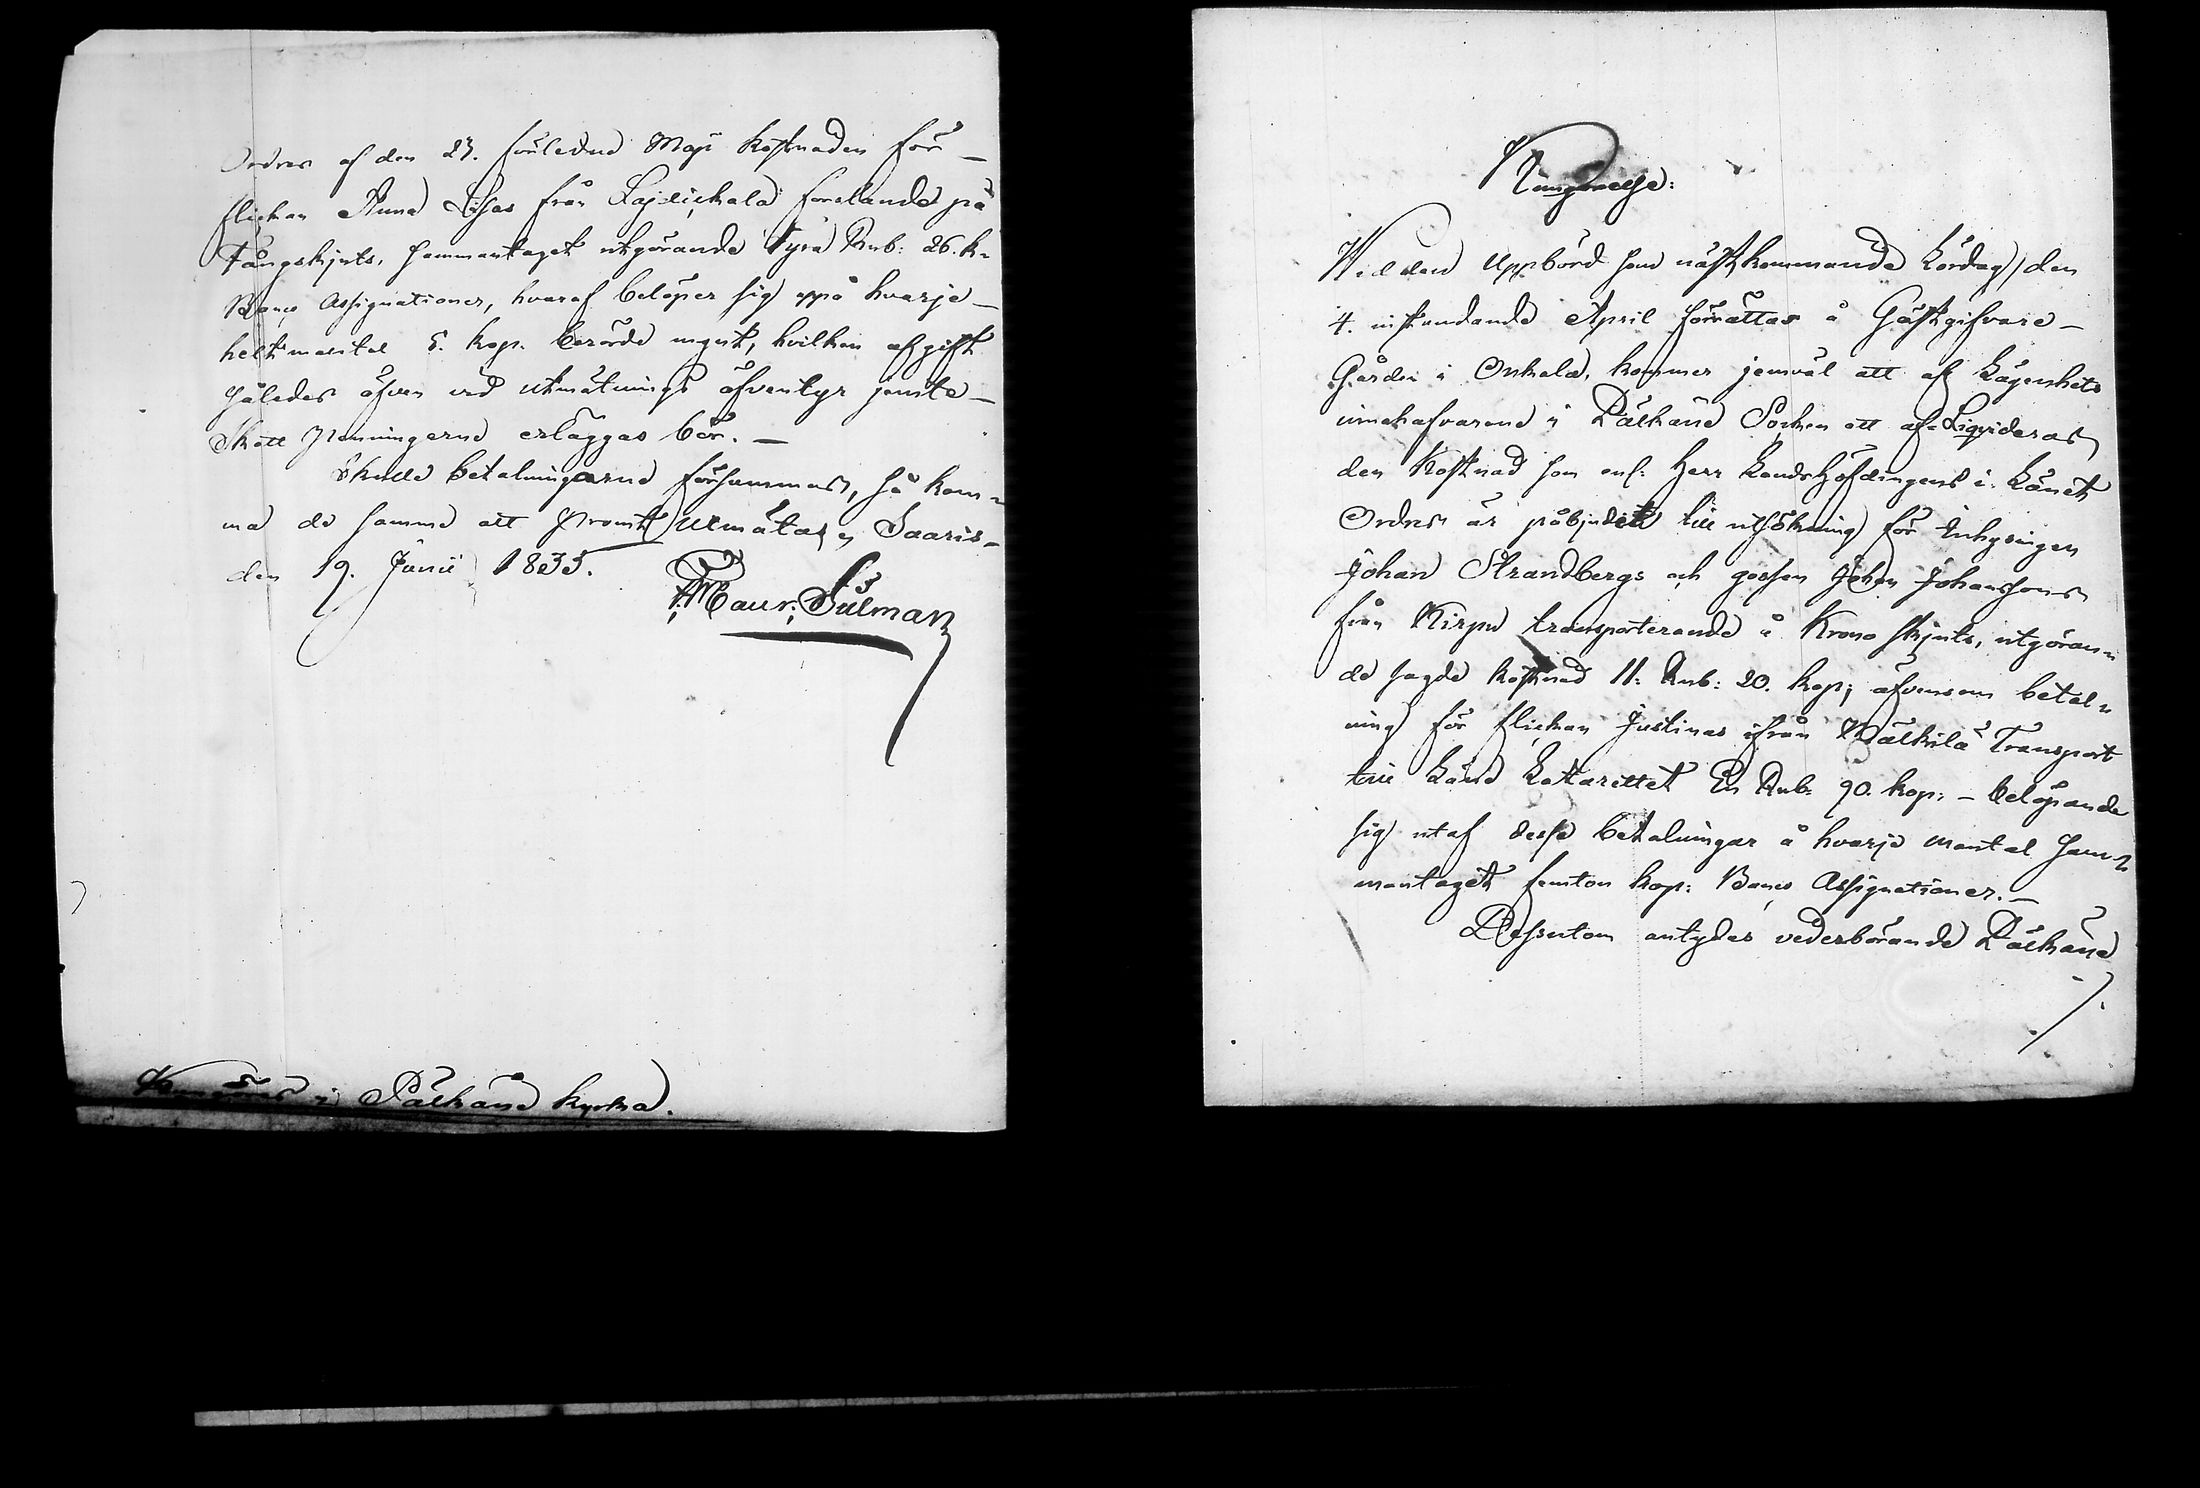 Ordres af den 23. förledne Maji kostnaden för
flickan Anna Lisas från Lajdickala forslande på
Fångskjuts, sammantaget utgörande Fyra Rub: 26. k.
Banco Assignationer, hvaraf belöper sig oppå hvarje
helt mantal 5. kop. berörde mynt, hvilken afgift
således äfven vid utmätnings äfventyr jemte
Skatt Penningerne erläggas bör. —
Skulle betalningarne försummas, så kom-
ma de samme att promt utmätas, Saaris
den 19. Junii 1835.
F: Maur: Silman
Kungöres i Pälkäne kyrka.
Kungörelse:
Wid den Uppbörd som nästkommande Lördag den
4. instundande April förrättas å Gästgifvare-
Gården i Onkala, kommer jemväl att af Lägenhets
innehafvarena i Pälkäne Socken att af Liqvideras
den Kostnad som enl: Herr Landshöfdingens i Länet
Ordres är påbjudet till utsökning för Inhysingen
Johan Strandbergs och gossen Johan Johanssons
från Kirpu transporterande å Krono skjuts, utgöran-
de sagde kostnad 11: Rub: 20. kop; äfvensom betal-
ning för flickan Justinas ifrån Wälkilä Transport
till Länd Lattarettet En Rub: 90. kop: – belöpande
sig utaf desse betalningar å hvarje mantal sam-
mantaget femton kop: Banco Assignationer. —
Dessutom antydes vederbörande Pälkäne
./.